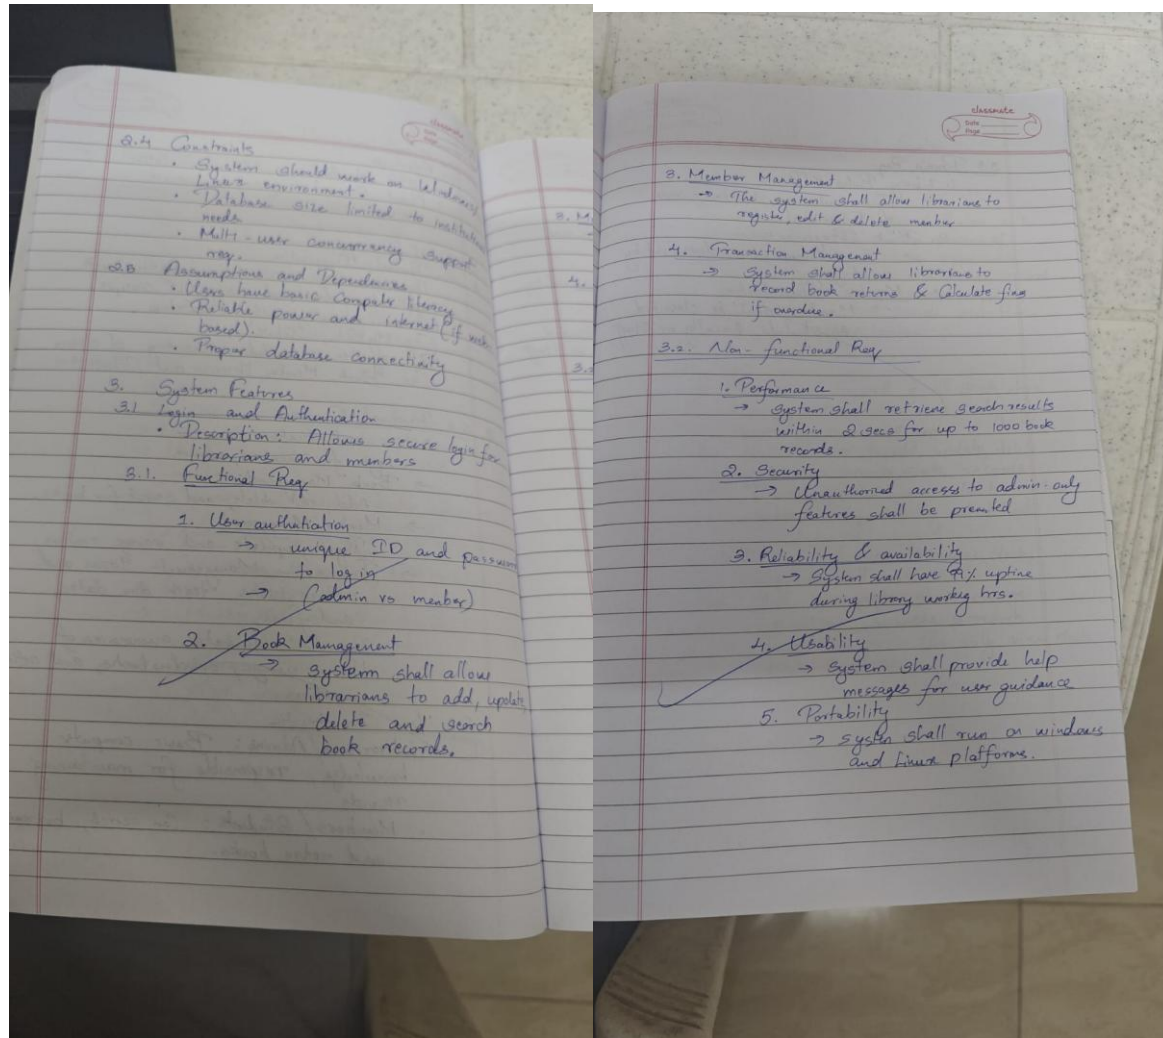 classmate
Date
Page
2.4 Constraints
• System should work on Windows/
Linux environment.
• Database size limited to institution
needs
• Multi-user concurrency support
req.
Assumptions and Dependencies
• Users have basic Computer literacy
• Reliable power and internet (if web
based).
• Proper database connectivity
3. System Features
3.1 Login and Authentication
• Description: Allows secure login for
librarians and members
3.1. Functional Req
1. User
→ unique ID and password
to log in
→ (admin vs member)
2. Book Management
→ system shall allow
librarians to add, update,
delete and search
book records.
3. M
4.
classmate
Date
Page
3. Member Management
→ The system shall allow librarians to
register, edit & delete member
4. Transaction Management
→ System shall allow librarians to
record book returns & Calculate fine
if overdue.
3.2. Non-functional Req
1. Performance
→ system shall retrieve search results
within 2 secs for up to 1000 book
records.
2. Security
→ Unauthorized access to admin-only
features shall be
3. Reliability & availability
→ System shall have 99% uptime
during library hrs.
4. Usability
→ system shall provide help
messages for user guidance
5. Portability
→ system shall run on windows
and Linux platforms.